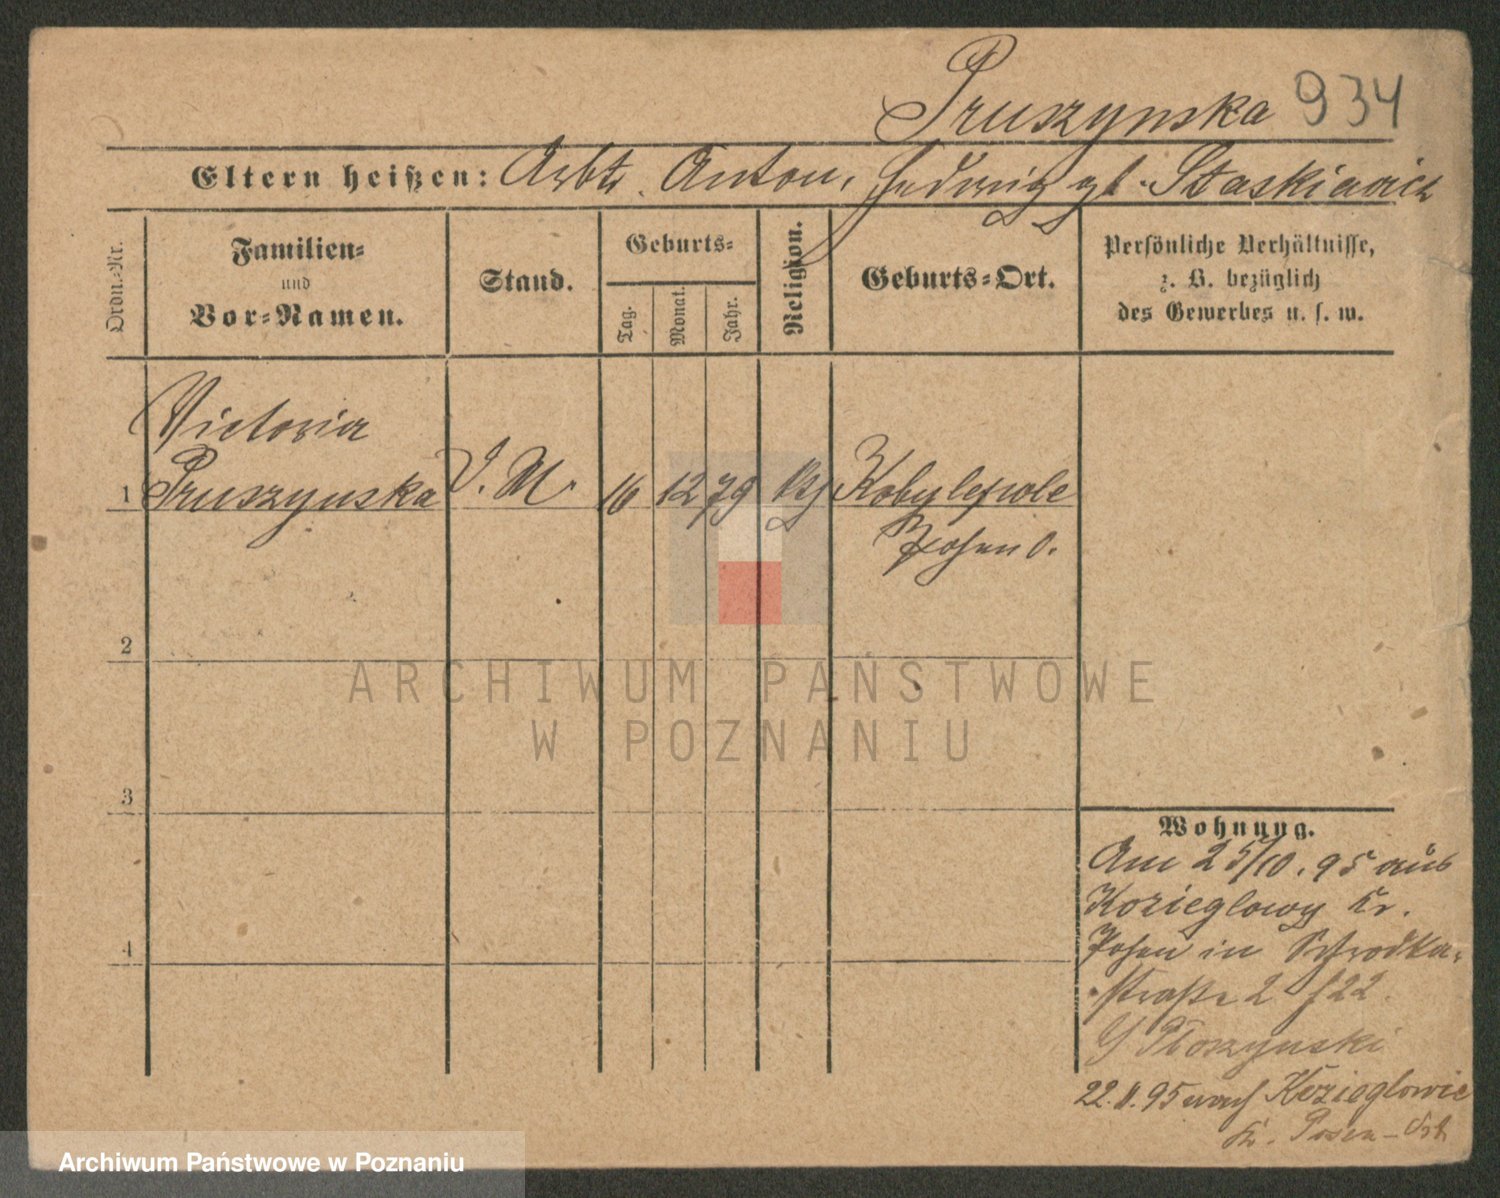 Pruszynska 934
Eltern heißen: Arbtr. Anton, Hedwig gb. Staskiewicz
Ordn.-Nr.
Familien-
und
Vor-Namen.
Stand.
Geburts-
Tag.
Monat.
Jahr.
Religion.
Geburts-Ort.
Persönliche Verhältnisse,
z. B. bezüglich
des Gewerbes u. s. w.
Victoria
1 Pruszynska D. M. 16 12 79 Kobylepole
Posen O.
2
3
4
Wohnung.
Am 25/10. 95 aus
Kozieglowy Kr.
Posen in Schrodka-
straße 2
Ploszynski
22. 11. 95 nach Kozieglowie
Kr. Posen-Ost
ARCHIWUM PAŃSTWOWE
W POZNANIU
Archiwum Państwowe w Poznaniu